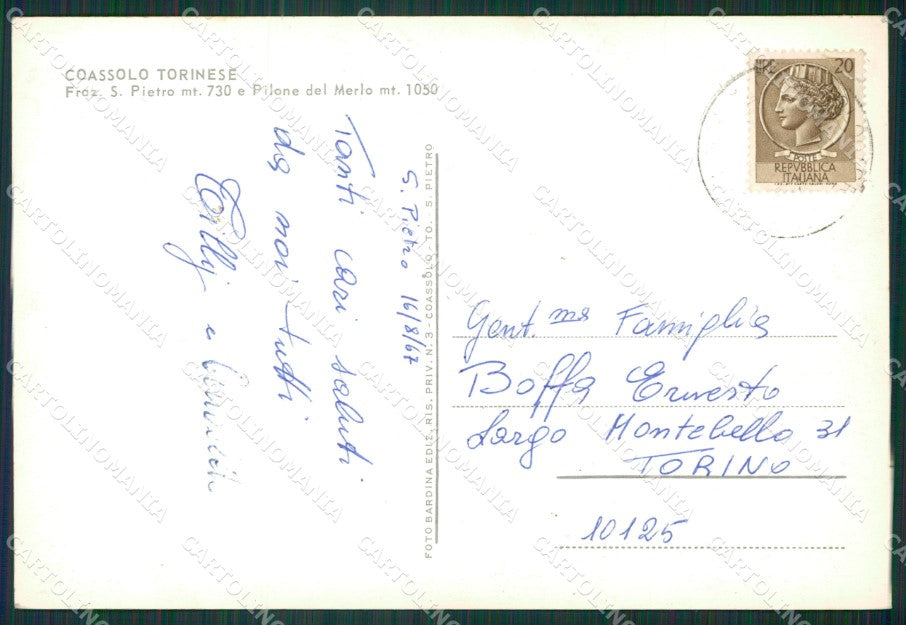 COASSOLO TORINESE
Fraz. S. Pietro mt. 730 e Pilone del Merlo mt. 1050
S. Pietro 16/8/67
Tanti cari saluti
da noi tutti
e
FOTO BARDINA EDIZ. RIS. PRIV. N. 3 - COASSOLO - TO. - S. PIETRO
LIRE 20
POSTE
REPVBBLICA
ITALIANA
Gent.ma Famiglia
Boffa Ernesto
Largo Montebello 31
TORINO
10125
CARTOLINOMANIA